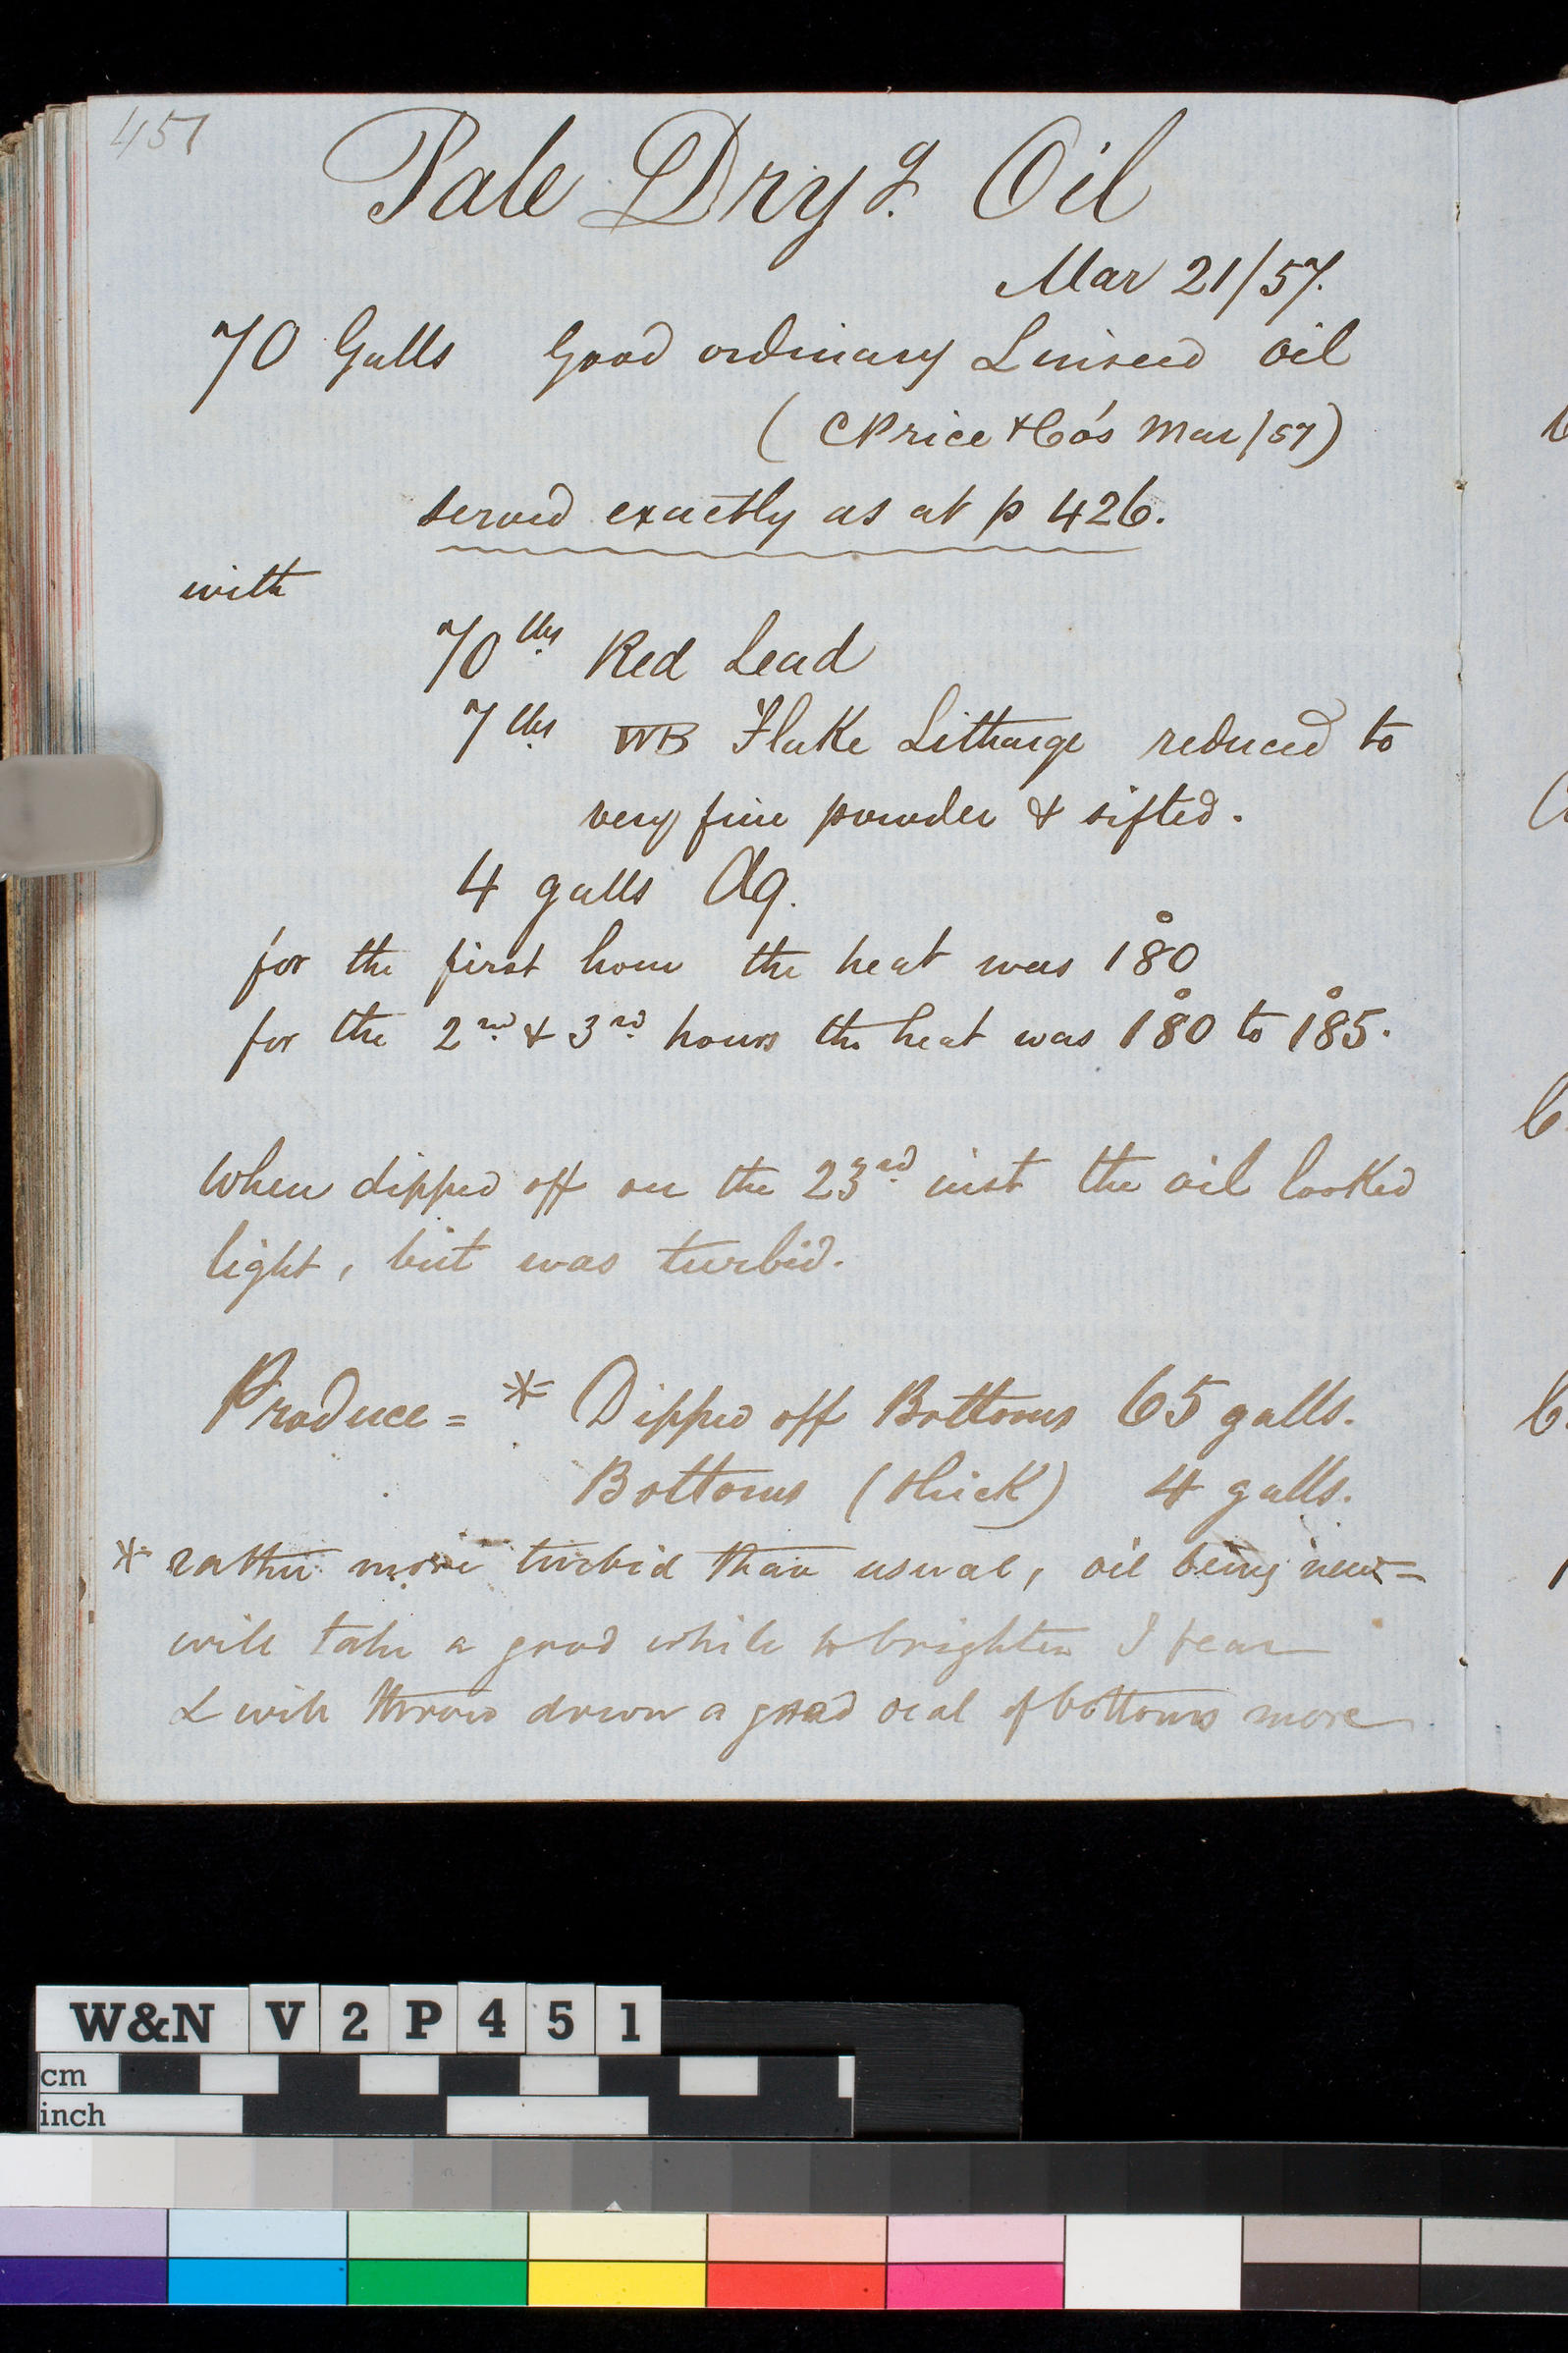 451
Pale Dryg. Oil
Mar 21/57.
70 Galls Good ordinary Linseed oil
(C Price & Co's Mar/57)
served exactly as at p 426.
with
70 lbs Red Lead
7 lbs WB Flake Litharge reduced to
very fine powder & sifted.
4 galls Aq.
for the first hour the heat was 180°
for the 2nd & 3rd hours the heat was 180° to 185°.
When dipped off on the 23rd inst the oil looked
light, but was turbid.
Produce = * Dipped off Bottoms 65 galls.
Bottoms (thick) 4 galls.
* rather more turbid than usual, oil being new =
will take a good while to brighten I fear
& will throw down a good deal of bottoms more
W&N V2P451
cm
inch